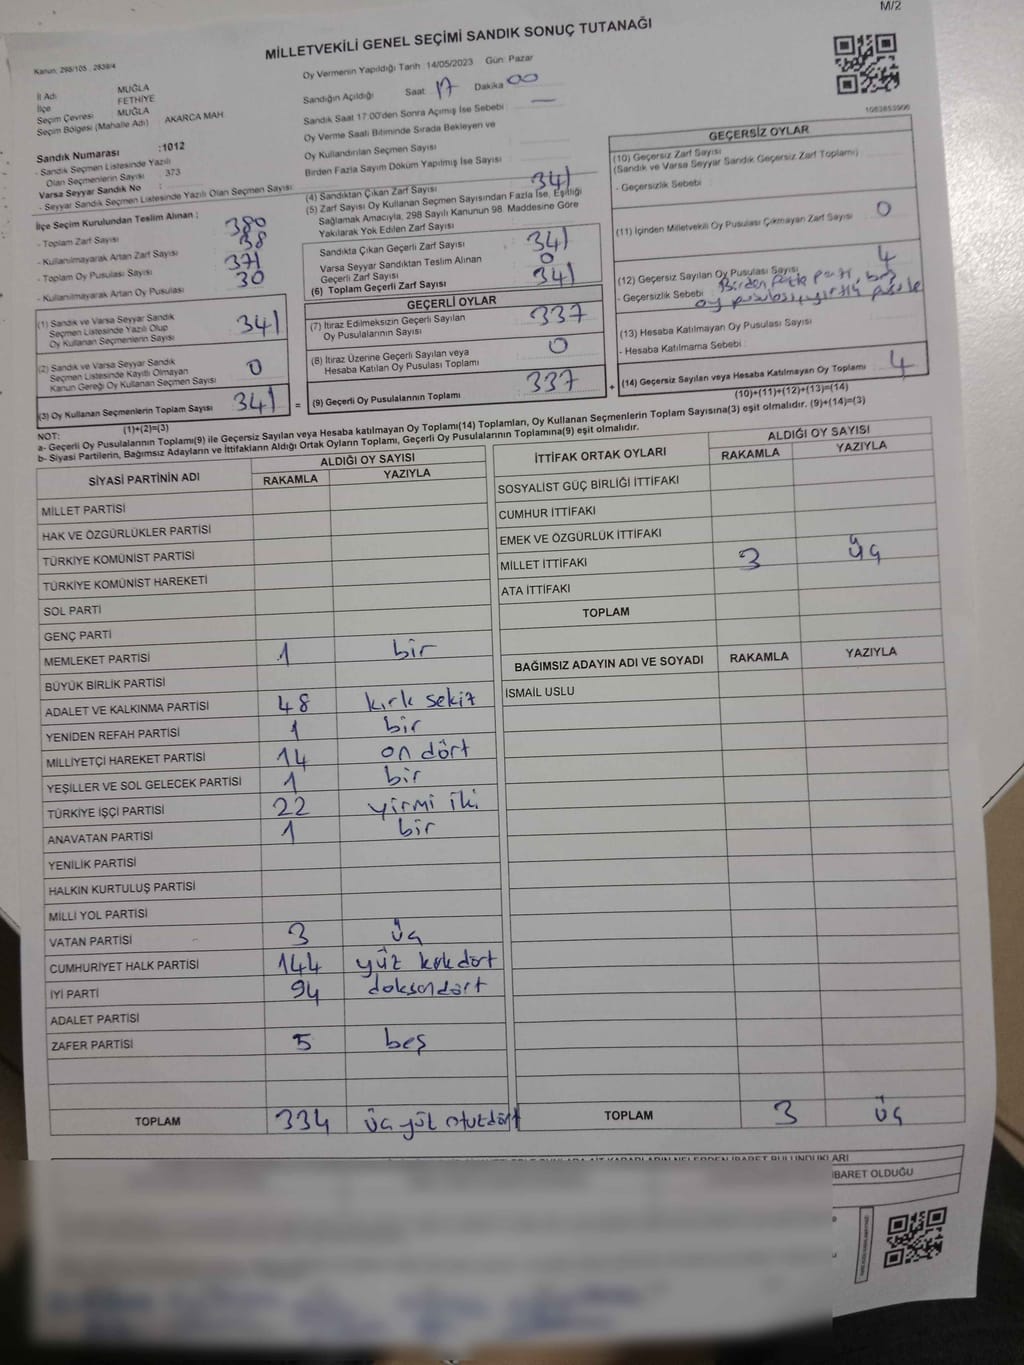 M/2
MİLLETVEKİLİ GENEL SEÇİMİ SANDIK SONUÇ TUTANAĞI
Kanun: 298/105 , 2839/4
İl Adı MUĞLA
İlçe FETHİYE
Seçim Çevresi MUĞLA
Seçim Bölgesi (Mahalle Adı) AKARCA MAH
Sandık Numarası :1012
- Sandık Seçmen Listesinde Yazılı
Olan Seçmenlerin Sayısı : 373
Varsa Seyyar Sandık No :
- Seyyar Sandık Seçmen Listesinde Yazılı Olan Seçmen Sayısı
İlçe Seçim Kurulundan Teslim Alınan :
- Toplam Zarf Sayısı 380
- Kullanılmayarak Artan Zarf Sayısı 38
- Toplam Oy Pusulası Sayısı 371
- Kullanılmayarak Artan Oy Pusulası 30
(1) Sandık ve Varsa Seyyar Sandık
Seçmen Listesinde Yazılı Olup
Oy Kullanan Seçmenlerin Sayısı 341
(2) Sandık ve Varsa Seyyar Sandık
Seçmen Listesinde Kayıtlı Olmayan
Kanun Gereği Oy Kullanan Seçmen Sayısı 0
(3) Oy Kullanan Seçmenlerin Toplam Sayısı 341
(1)+(2)=(3)
Oy Vermenin Yapıldığı Tarih : 14/05/2023 Gün: Pazar
Sandığın Açıldığı Saat : 17 Dakika : 00
Sandık Saat 17:00'den Sonra Açılmış İse Sebebi : —
Oy Verme Saati Bitiminde Sırada Bekleyen ve
Oy Kullandırılan Seçmen Sayısı :
Birden Fazla Sayım Döküm Yapılmış İse Sayısı :
(4) Sandıktan Çıkan Zarf Sayısı 341
(5) Zarf Sayısı Oy Kullanan Seçmen Sayısından Fazla İse, Eşitliği
Sağlamak Amacıyla, 298 Sayılı Kanunun 98. Maddesine Göre
Yakılarak Yok Edilen Zarf Sayısı
Sandıkta Çıkan Geçerli Zarf Sayısı : 341
Varsa Seyyar Sandıktan Teslim Alınan
Geçerli Zarf Sayısı : 0
(6) Toplam Geçerli Zarf Sayısı : 341
GEÇERLİ OYLAR
(7) İtiraz Edilmeksizin Geçerli Sayılan
Oy Pusulalarının Sayısı : 337
(8) İtiraz Üzerine Geçerli Sayılan veya
Hesaba Katılan Oy Pusulası Toplamı : 0
= (9) Geçerli Oy Pusulalarının Toplamı : 337
GEÇERSİZ OYLAR
1083853906
(10) Geçersiz Zarf Sayısı
(Sandık ve Varsa Seyyar Sandık Geçersiz Zarf Toplamı)
- Geçersizlik Sebebi :
(11) İçinden Milletvekili Oy Pusulası Çıkmayan Zarf Sayısı 0
(12) Geçersiz Sayılan Oy Pusulası Sayısı 4
- Geçersizlik Sebebi : Birden fazla parti, boş
oy pusulası, yırtılı pusula
(13) Hesaba Katılmayan Oy Pusulası Sayısı :
- Hesaba Katılmama Sebebi :
+ (14) Geçersiz Sayılan veya Hesaba Katılmayan Oy Toplamı 4
(10)+(11)+(12)+(13)=(14)
NOT:
a- Geçerli Oy Pusulalarının Toplamı(9) ile Geçersiz Sayılan veya Hesaba katılmayan Oy Toplamı(14) Toplamları, Oy Kullanan Seçmenlerin Toplam Sayısına(3) eşit olmalıdır. (9)+(14)=(3)
b- Siyasi Partilerin, Bağımsız Adayların ve İttifakların Aldığı Ortak Oyların Toplamı, Geçerli Oy Pusulalarının Toplamına(9) eşit olmalıdır.
SİYASİ PARTİNİN ADI ALDIĞI OY SAYISI
RAKAMLA YAZIYLA
MİLLET PARTİSİ
HAK VE ÖZGÜRLÜKLER PARTİSİ
TÜRKİYE KOMÜNİST PARTİSİ
TÜRKİYE KOMÜNİST HAREKETİ
SOL PARTİ
GENÇ PARTİ
MEMLEKET PARTİSİ 1 bir
BÜYÜK BİRLİK PARTİSİ
ADALET VE KALKINMA PARTİSİ 48 kırk sekiz
YENİDEN REFAH PARTİSİ 1 bir
MİLLİYETÇİ HAREKET PARTİSİ 14 on dört
YEŞİLLER VE SOL GELECEK PARTİSİ 1 bir
TÜRKİYE İŞÇİ PARTİSİ 22 yirmi iki
ANAVATAN PARTİSİ 1 bir
YENİLİK PARTİSİ
HALKIN KURTULUŞ PARTİSİ
MİLLİ YOL PARTİSİ
VATAN PARTİSİ 3 üç
CUMHURİYET HALK PARTİSİ 144 yüz kırkdört
İYİ PARTİ 94 doksandört
ADALET PARTİSİ
ZAFER PARTİSİ 5 beş
TOPLAM 334 üç yüz otuzdört
İTTİFAK ORTAK OYLARI ALDIĞI OY SAYISI
RAKAMLA YAZIYLA
SOSYALİST GÜÇ BİRLİĞİ İTTİFAKI
CUMHUR İTTİFAKI
EMEK VE ÖZGÜRLÜK İTTİFAKI
MİLLET İTTİFAKI 3 üç
ATA İTTİFAKI
TOPLAM
BAĞIMSIZ ADAYIN ADI VE SOYADI RAKAMLA YAZIYLA
İSMAİL USLU
TOPLAM 3 üç
İBARET OLDUĞU